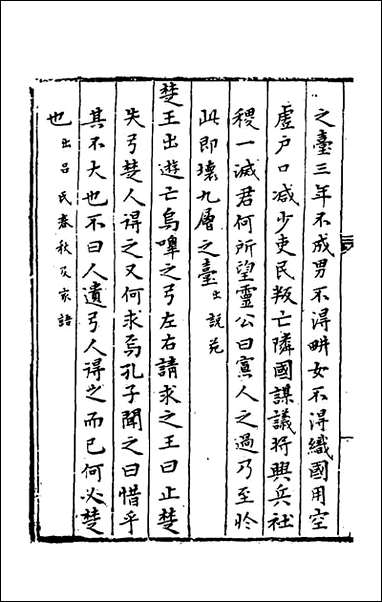 之臺三年不成男不得畊女不得織國用空
虛户口减少吏民叛亡隣國謀議將興兵社
稷一滅君何所望靈公曰寡人之過乃至於
此即壞九層之臺出説苑
楚王出遊亡烏嘷之弓左右請求之王曰止楚
失弓楚人得之又何求焉孔子聞之曰惜乎
其不大也不曰人遺弓人得之而已何必楚
也出吕氏春秋及家語